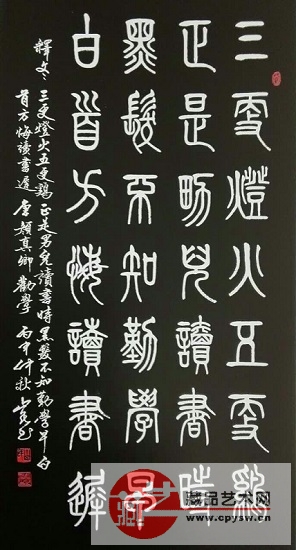 三更燈火五更鷄
正是男兒讀書時
黑髮不知勤學早
白首方悔讀書遲
釋文：三更燈火五更鷄正是男兒讀書時黑髮不知勤學早白
首方悔讀書遲 唐顏真卿勸學 丙申仲秋
藏品艺术网
www.cpysw.cn